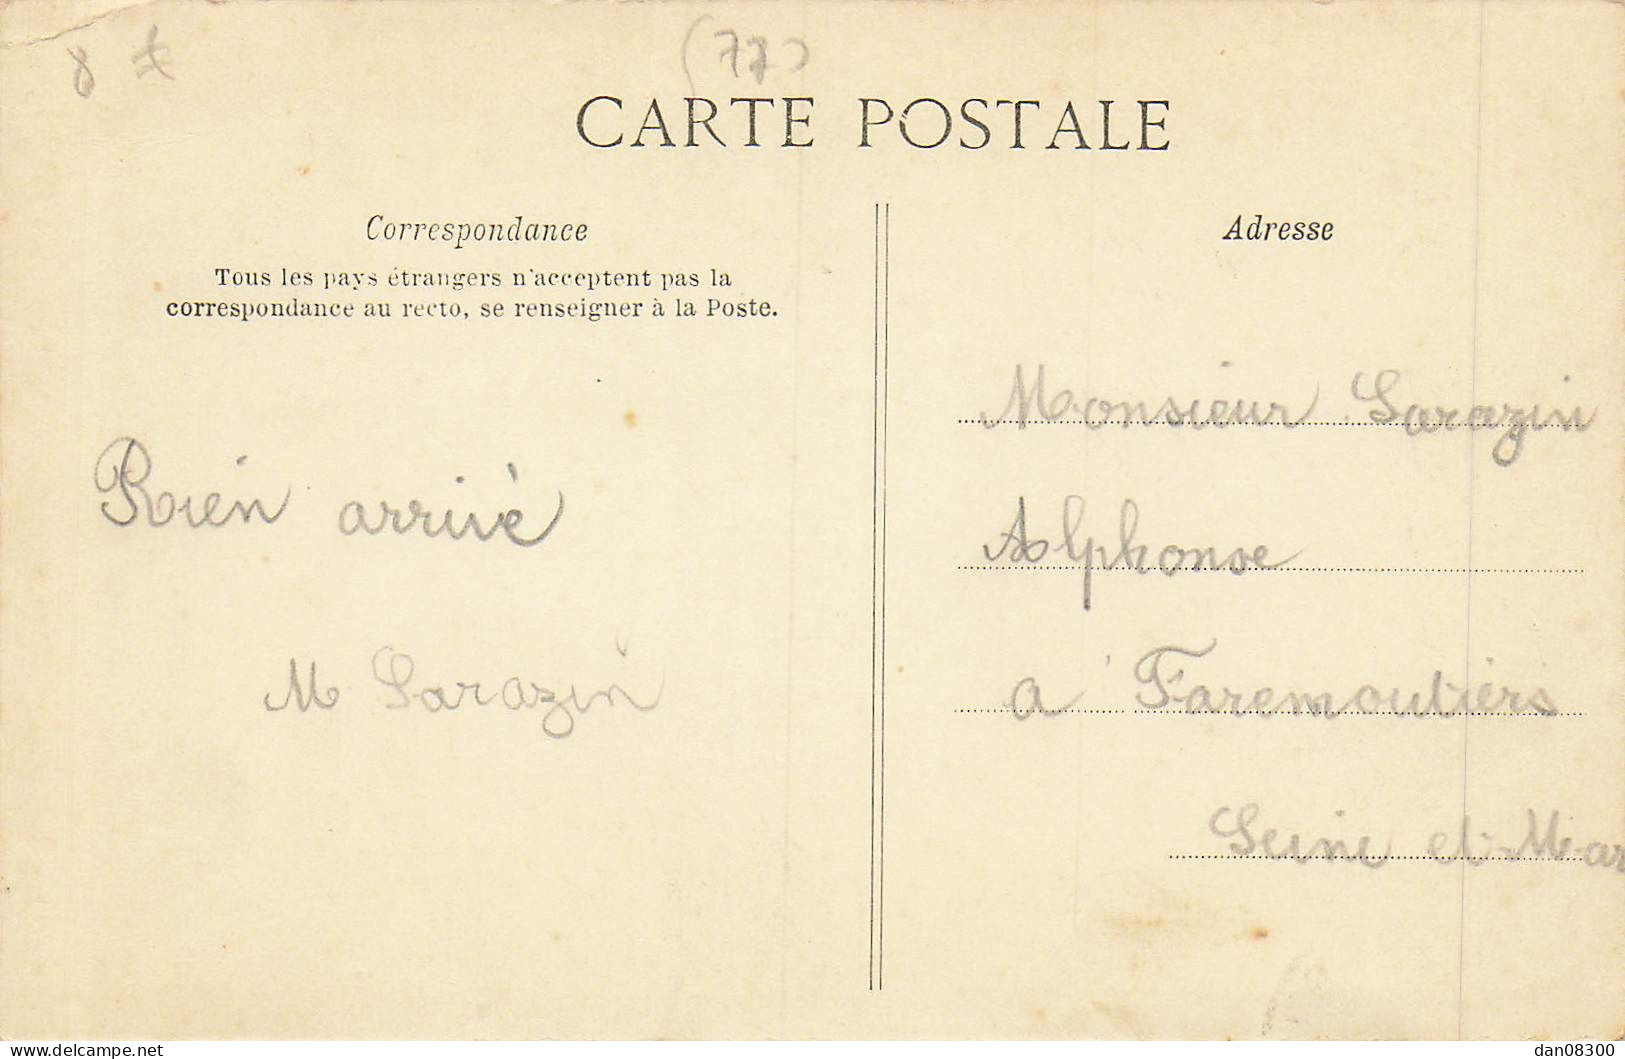 8 £
(77)
CARTE POSTALE
Correspondance
Tous les pays étrangers n'acceptent pas la
correspondance au recto, se renseigner à la Poste.
Rien arrivè
M Sarazin
Adresse
Monsieur Sarazin
Alphonse
a' Faremoutiers
Seine et-Mar
delcampe.net
dan08300